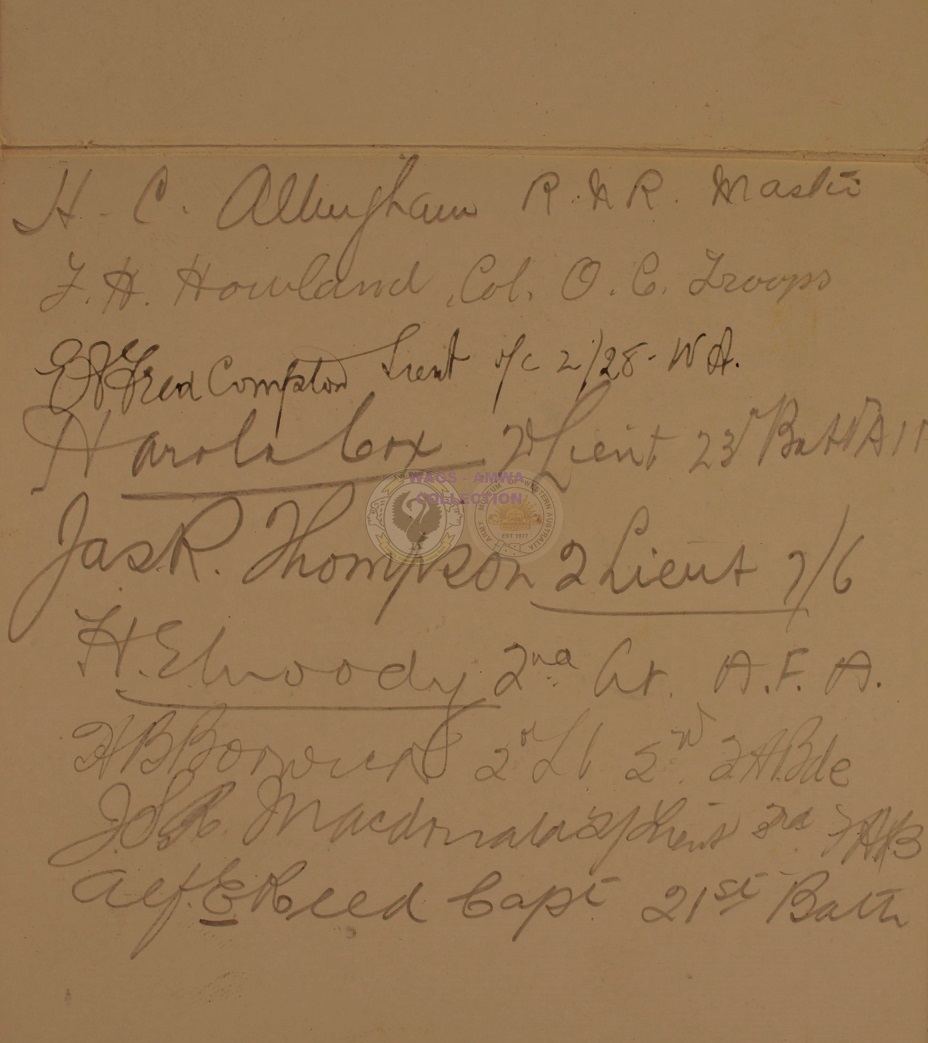 H. C. Allingham R.N.R. Master
F. H. Howland, Col. O. C. Troops
Compton Lieut o/c 2/28 - W A.
Harold Cox 2d Lieut 23rd Battn A I F
WAGS - AMWA
COLLECTION
Jas R. Thompson 2 Lieut 7/6
H. Elwoody 2nd Lt. A. F. A.
H B Borwick 2nd Lt 2nd F A Bde
Macdonald 2/Lieut 3rd F A B
Alf. E Reed Capt 21st Battn